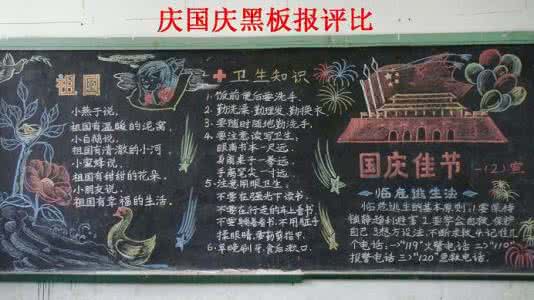 庆国庆黑板报评比
祖国
小燕子说,
祖国有温暖的泥窝,
小白鹅说,
祖国有清澈的小河
小蜜蜂说,
祖国有甜甜的花朵.
小朋友说,
祖国有幸福的生活.
卫生知识
1. 饭前便后要洗手.
2. 勤洗澡、勤理发、勤换衣
3. 要随时随地勤洗手.
4. 要注意读写卫生:
眼离书本一尺远,
身离桌子一拳远,
手离笔尖一寸远
5. 注意用眼卫生:
不要在强光下读书
不要在行走的车上看书
不要躺着看书、不用脏手
揉眼睛、常勤剪指甲.
6. 早晚刷牙、食后漱口.
国庆佳节
临危逃生法
临危逃生的基本原则:1要保持
镇静趋利避害 2要学会自救,保护
自己 3想方设法,不断求救 4记住几
个电话:一>"119"火警电话 二>"110"
报警电话 三>"120"急救电话.